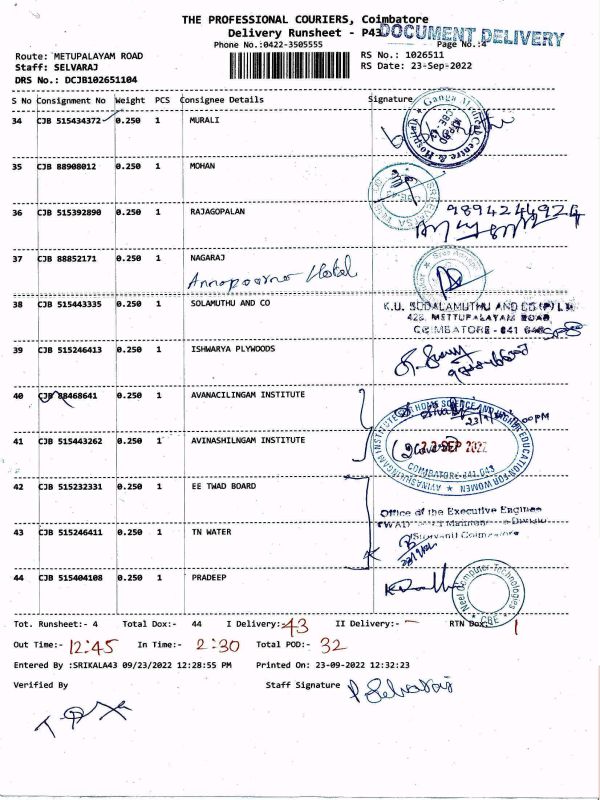 THE PROFESSIONAL COURIERS, Coimbatore
Delivery Runsheet - P43
DOCUMENT DELIVERY
Phone No.:0422-3505555
Page No.:4
Route: METUPALAYAM ROAD
RS No.: 1026511
Staff: SELVARAJ
RS Date: 23-Sep-2022
DRS No.: DCJB102651104
S No Consignment No Weight PCS Consignee Details Signature
34 CJB 515434372 0.250 1 MURALI
Ganga Medical Centre & Hospital
35 CJB 88908012 0.250 1 MOHAN
36 CJB 515392890 0.250 1 RAJAGOPALAN
9894244924
37 CJB 88852171 0.250 1 NAGARAJ
Annapoorna Hotel
38 CJB 515443335 0.250 1 SOLAMUTHU AND CO
K.U. SODALAMUTHU AND CO (P) LTD
428, METTUPALAYAM ROAD,
COIMBATORE - 641 043
39 CJB 515246413 0.250 1 ISHWARYA PLYWOODS
40 CJB 88468641 0.250 1 AVANACILINGAM INSTITUTE
41 CJB 515443262 0.250 1 AVINASHILNGAM INSTITUTE
AVINASHILINGAM INSTITUTE FOR HOME SCIENCE AND HIGHER EDUCATION FOR WOMEN
23 SEP 2022
COIMBATORE-641 043
42 CJB 515232331 0.250 1 EE TWAD BOARD
Office of the Executive Engineer
43 CJB 515246411 0.250 1 TN WATER
44 CJB 515404108 0.250 1 PRADEEP
Computer Technologies
CBE
Tot. Runsheet:- 4 Total Dox:- 44 I Delivery:- 43 II Delivery:- — RTN Dox: 1
Out Time:- 12:45 In Time:- 2:30 Total POD:- 32
Entered By :SRIKALA43 09/23/2022 12:28:55 PM Printed On: 23-09-2022 12:32:23
Verified By Staff Signature P Selvaraj